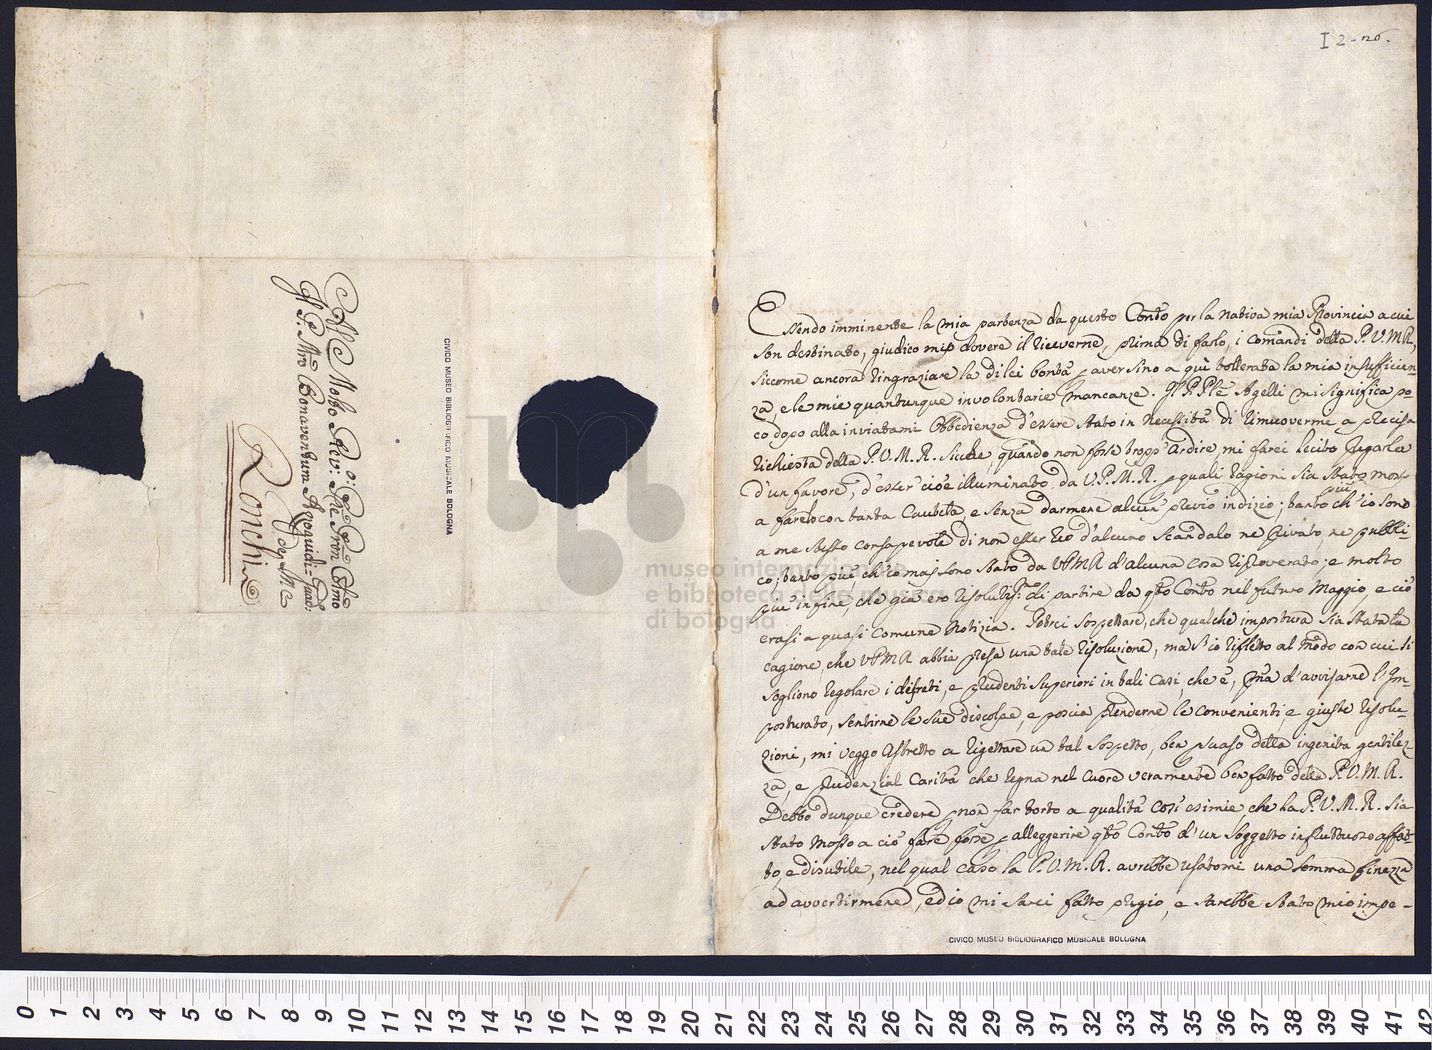 I 2-126.
Al Molto Rev: Pre Pron Colmo
Il P. Mro Bonaventura Azoquidi= Guard:
de M. C.
Ronchi
CIVICO MUSEO BIBLIOGRAFICO MUSICALE BOLOGNA
museo internazionale
e biblioteca della musica
di bologna
Essendo imminente la mia partenza da questo Conto per la nativa mia Provincia a cui
son destinato, giudico mio dovere il riceverne, prima di farlo, i comandi della P.V.M.R,
siccome ancora ringraziare la di lei bontà p aver sino a quì tollerata la mia insufficien-
za, e le mie quantunque involontarie mancanze. Il P. Ple Agelli mi significa po-
co dopo alla inviatami Obbedienza d'essere stato in necessità di rimuovermi a precisa
richiesta della P.V.M.R. Sicche, quando non fosse tropp'ardire, mi farei lecito pregarla
d'un favore, d'esser cioè illuminato da V.P.M.R. p quali ragioni sia stato mosso
a farelo con tanta Cautela e senza darmene alcun previo indizio; tanto più ch'io sono
a me stesso consapevole di non esser reo d'alcuno scandalo ne privato ne pubbli-
co; tanto più, ch'io mai sono stato da VPMR d'alcuna cosa rimproverato; e molto
più infine, che già ero risolutissmo di partire da qto Conto nel futuro Maggio, e ciò
erasi a quasi comune notizia. Potrei sospettare, che qualche impostura sia stata la
cagione, che VPMR abbia presa una tale risoluzione, ma s'io rifletto al modo con cui si
sogliono regolare i discreti, e prudenti superiori in tali casi, che è, pma d'avvisarne l'Im-
posturato, sentirne le sue discolpe, e poscia prenderne le convenienti e giuste risolu-
zioni, mi veggo astretto a rigettare un tal sospetto, ben psuaso della ingenita gentilez-
za, e prudenzial Carità che regna nel cuore veramente ben fatto della P.V.M.R.
Debbo dunque credere p non far torto a qualità così esimie, che la P.V.M.R. sia
stato mosso a ciò fare forse p alleggerire qto Conto d'un soggetto infruttuoso affat-
to, e disutile, nel qual caso la P.V.M.R. avrebbe usatomi una somma finezza
ad avvertirmene, ed io mi sarei fatto pregio, e sarebbe stato mio impe-
CIVICO MUSEO BIBLIOGRAFICO MUSICALE BOLOGNA
0 1 2 3 4 5 6 7 8 9 10 11 12 13 14 15 16 17 18 19 20 21 22 23 24 25 26 27 28 29 30 31 32 33 34 35 36 37 38 39 40 41 42